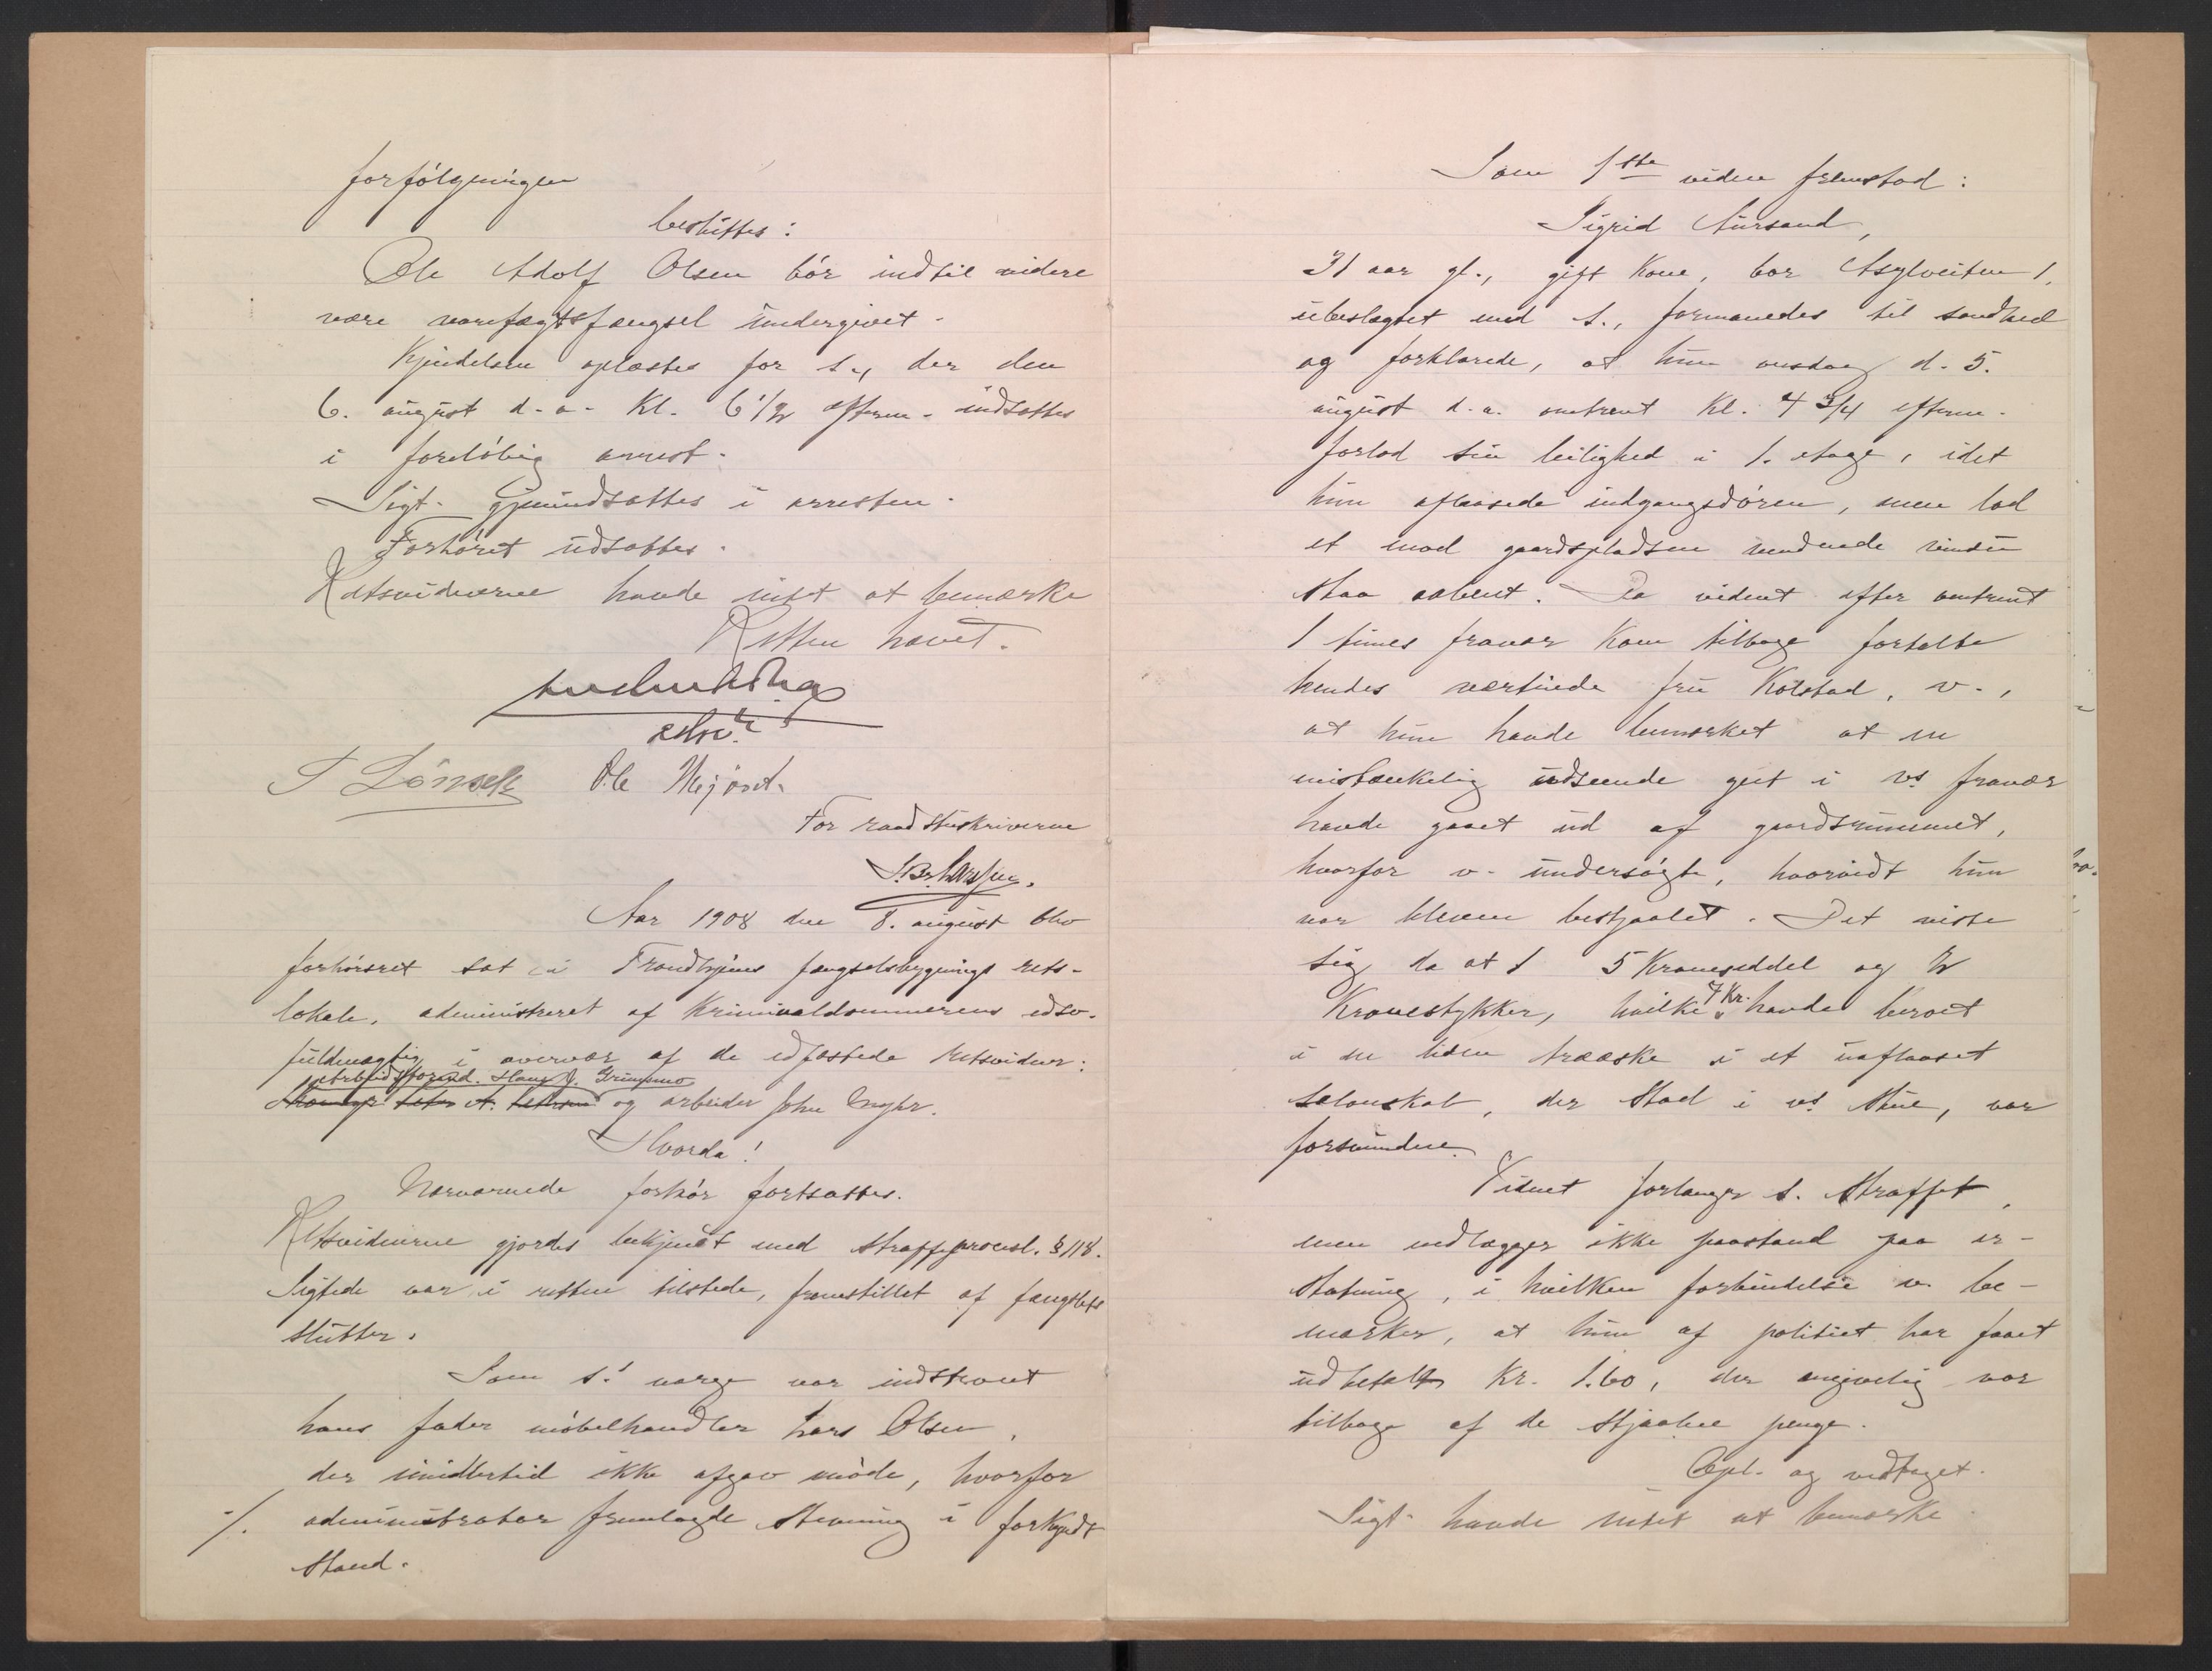 forfølgningen
besluttes:
Ole Adolf Olsen bør indtil videre
være varefægtsfængsel undergivet.
Kjendelsen oplæstes for s., der den
6. august d.a. kl. 6 1/2 efterm. indsattes
i foreløbig arrest.
Sigt. gjenindsattes i arresten.
Forhøret udsattes.
Retsvidnerne havde intet at bemærke
Retten hævet.
edsv.
Ole
For raadstuskriverne
Aar 1908 den 8. august blev
forhørsret sat i Trondhjems fængselsbygnings rets-
lokale, administreret af kriminaldommerens edsv.
fuldmægtig i overvær af de edfæstede retsvidner:
arbeidsformd. Hans J. Grimsmo
og arbeider John Myhr.
Hvorda!
Nærværende forhør fortsattes.
Retsvidnerne gjordes bekjendt med straffeprocesl. § 118.
Sigtede var i retten tilstede, fremstillet af fængslets
slutter.
Som s.' værge var indstevnt
hans fader møbelhandler Lars Olsen,
der imidlertid ikke afgav møde, hvorfor
./. administrator fremlagde stevning i forkyndt
stand.
Som 1ste vidne fremstod:
Sigrid Aursand,
31 aar gl., gift kone, bor Asylveiten 1,
ubeslægtet med s., formanedes til sandhed
og forklarede, at hun onsdag d. 5.
august d.a. omtrent kl. 4 3/4 efterm.
forlod sin leilighed i 1. etage, idet
hun aflaasede indgangsdøren, men lod
et mod gaardspladsen vendende vindu
staa aabent. Da vidnet efter omtrent
1 times fravær kom tilbage fortalte
hendes værtinde fru Kolstad, v.,
at hun havde bemærket at en
mistænkelig udseende gut i vs fravær
havde gaaet ud af gaardsrummet,
hvorfor v. undersøgte, hvorvidt hun
var bleven bestjaalet. Det viste
sig da at 1 5 kroneseddel og 2
kronestykker, hvilke 7 kr. havde beroet
i en liden trææske i et uaflaaset
salonskab, der stod i vs stue, var
forsvundne.
Vidnet forlanger s. straffet,
men nedlægger ikke paastand paa er-
statning, i hvilken forbindelse v. be-
mærker, at hun af politiet har faaet
udbetalt kr. 1.60, der angivelig var
tilbage af de stjaalne penge.
Opl. og vedtaget.
Sigt. havde intet at bemærke